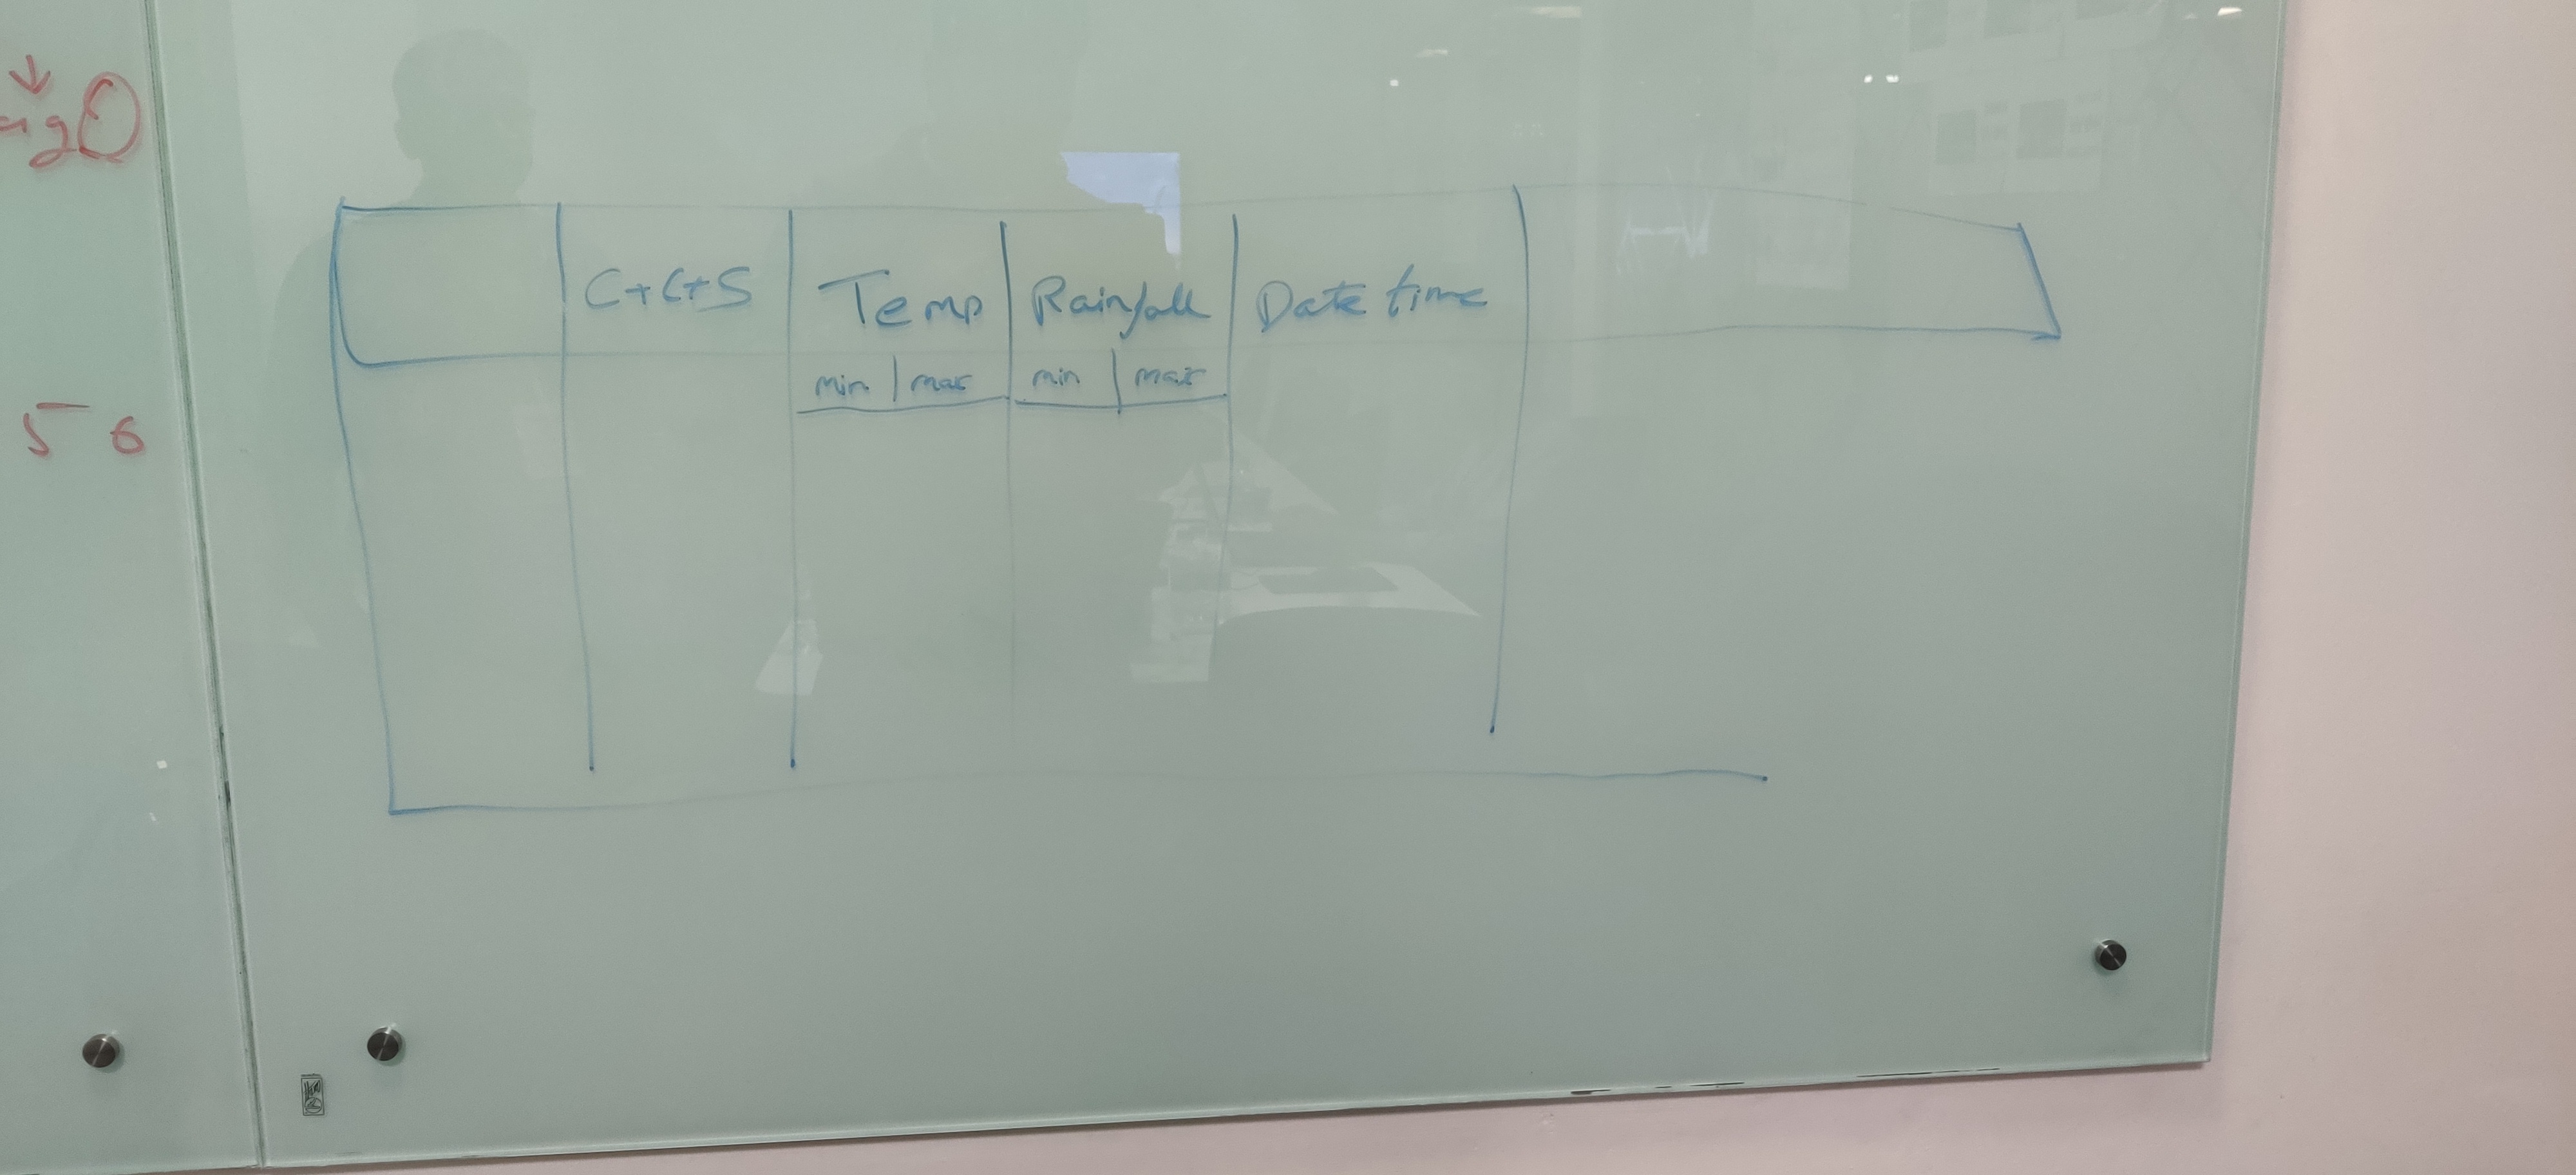 C+C+S Temp Rainfall Date time
min max min max
5 6